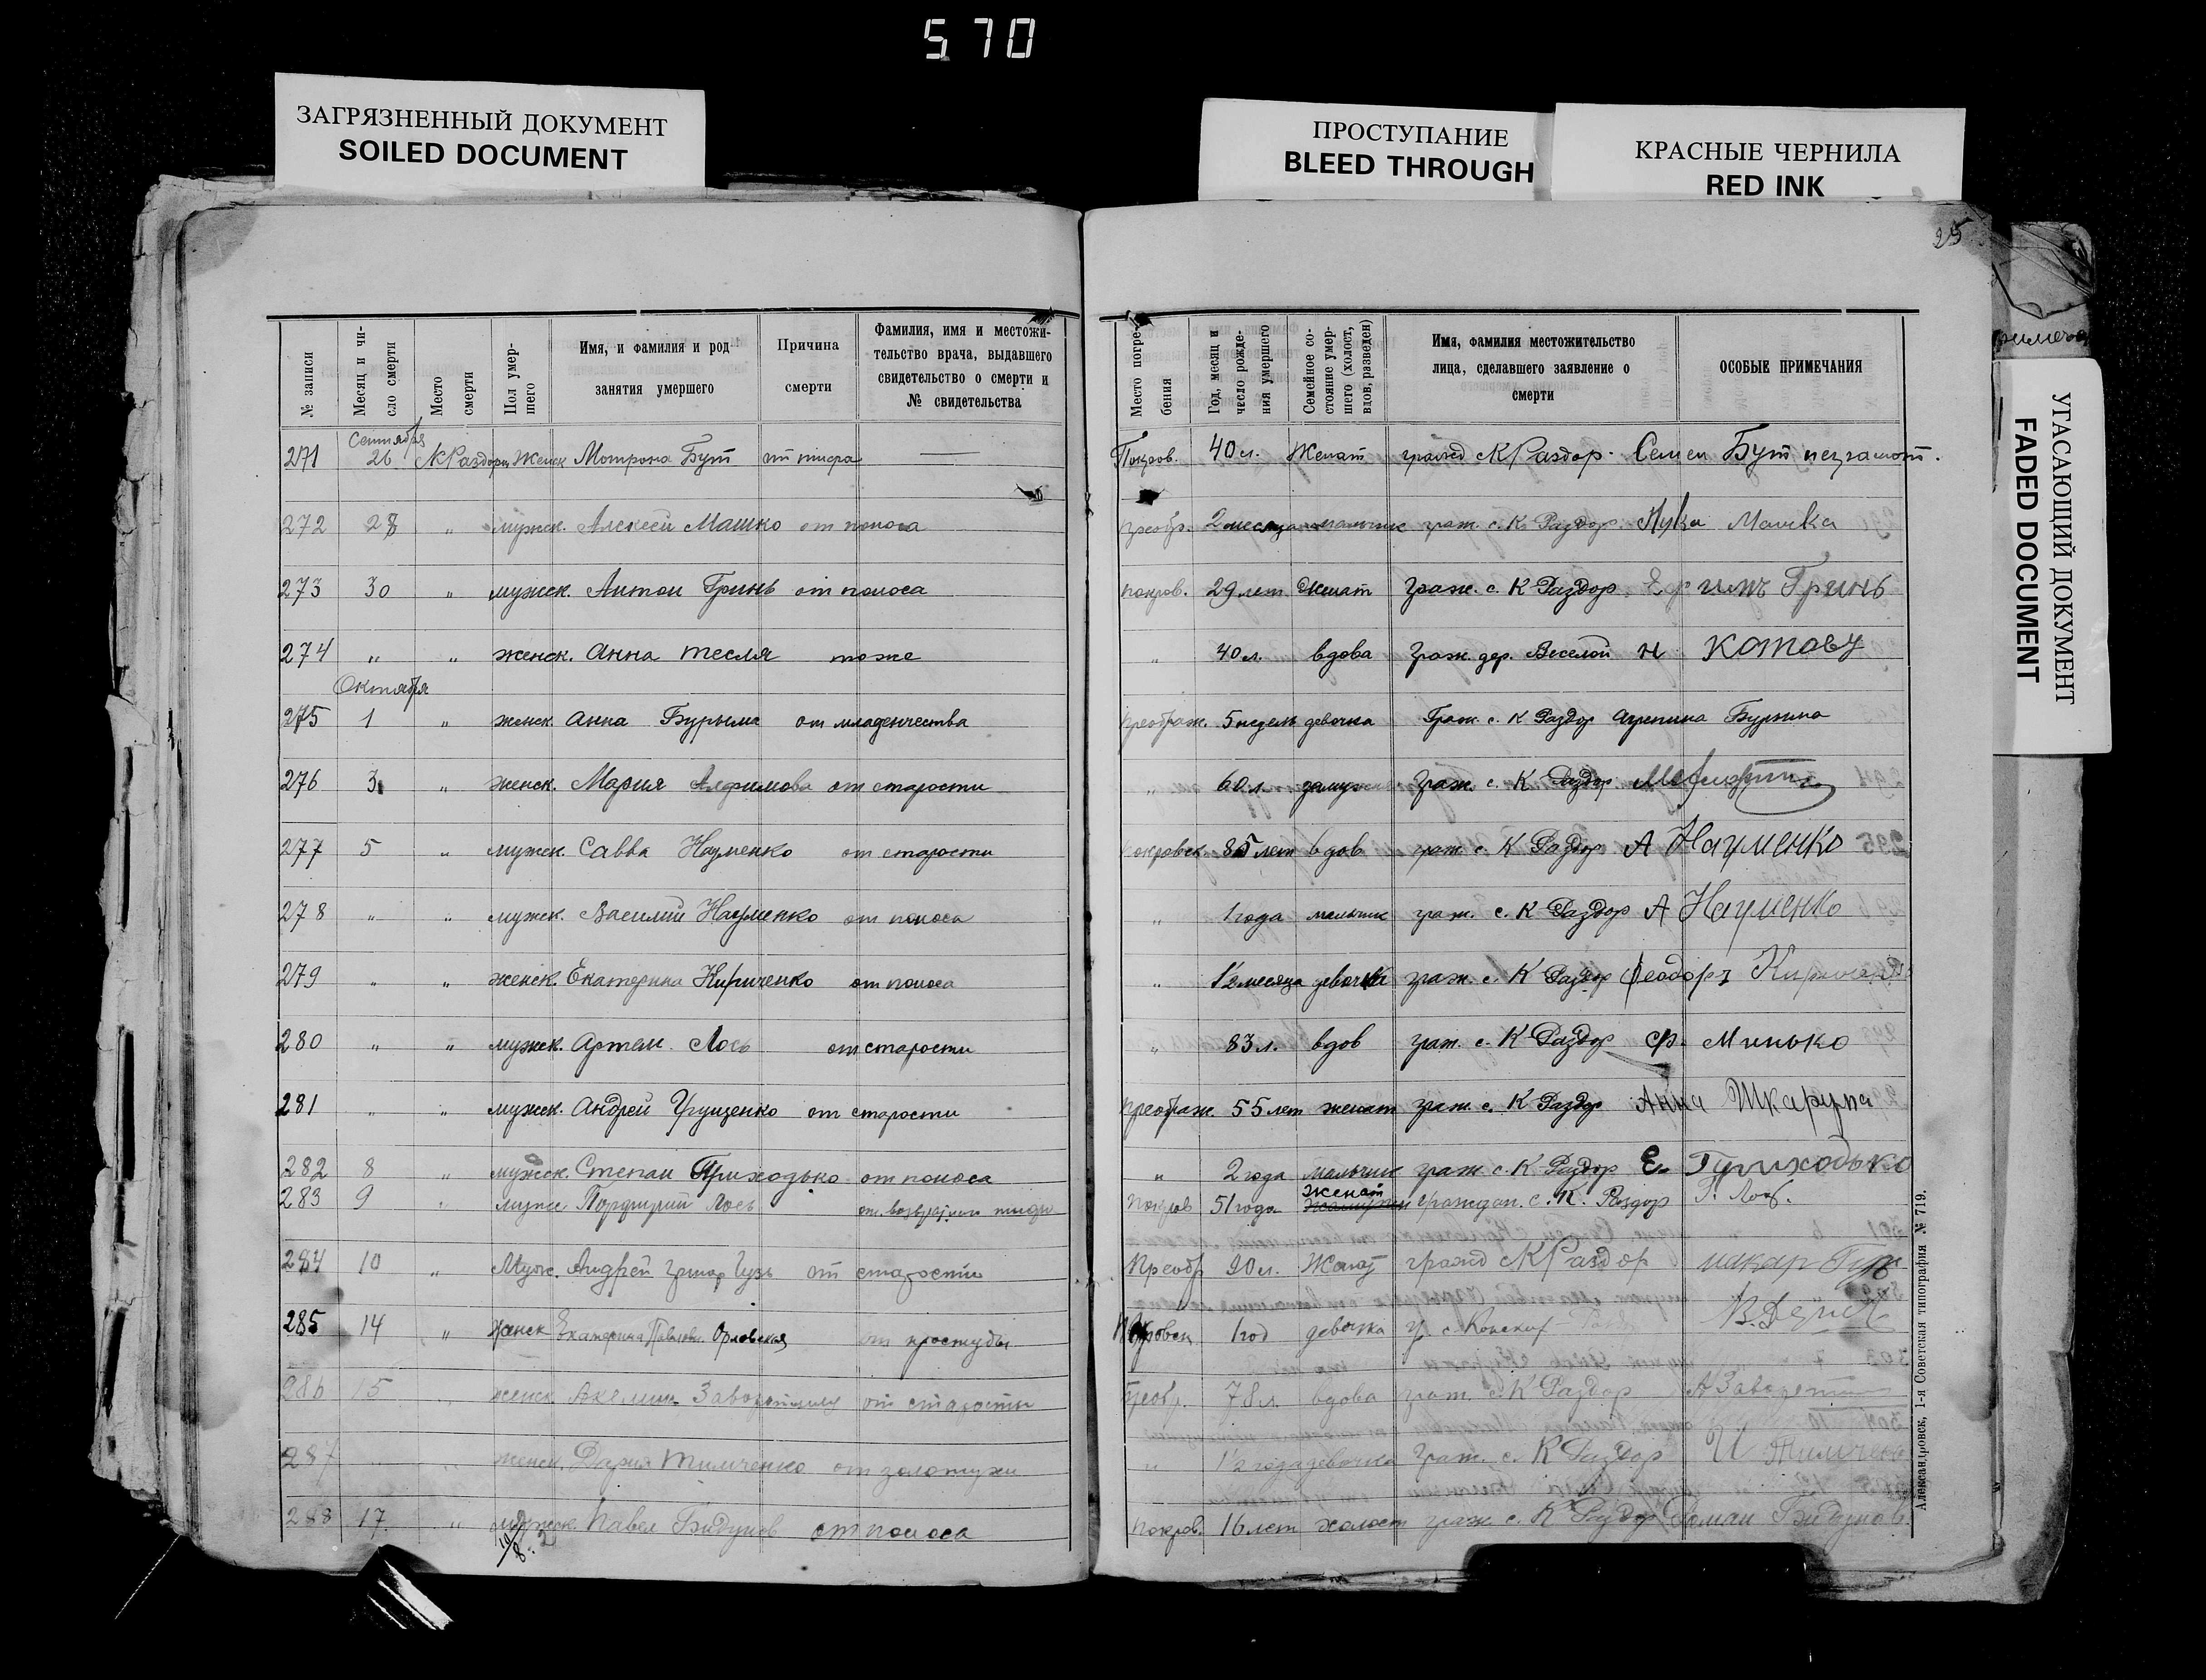 570
ЗАГРЯЗНЕННЫЙ ДОКУМЕНТ
SOILED DOCUMENT
ПРОСТУПАНИЕ
BLEED THROUGH
КРАСНЫЕ ЧЕРНИЛА
RED INK
УГАСАЮЩИЙ ДОКУМЕНТ
FADED DOCUMENT
25
№ записи
Месяц и число смерти
Место смерти
Пол умершего
Имя, и фамилия и род занятия умершего
Причина смерти
Фамилия, имя и местожительство врача, выдавшего свидетельство о смерти и № свидетельства
Место погребения
Год, месяц и число рождения умершего
Семейное состояние умершего (холост, вдов, разведен)
Имя, фамилия местожительство лица, сделавшего заявление о смерти
ОСОБЫЕ ПРИМЕЧАНИЯ
Сентября
271 26 К Раздоры Женск Мотрона Бут от тифа — Покров. 40 л. Женат гражд с К Раздор. Семен Бут неграмот.
272 28 " мужск. Алексей Машко от поноса Преобр. 2 месяца мальчик граж. с. К Раздор. Лука Машка
273 30 " мужск. Антон Гринь от поноса покров. 29 лет Женат Граж. с. К Раздор. Гринь
274 " " женск. Анна Тесля тоже " 40 л. вдова Граж. дер. Веселой Н Котову
Октября
275 1 " женск. Анна Бурыма от младенчества Преображ. 5 недель девочка Граж. с. К Раздор Бурыма
276 3 " женск. Мария Алфимова от старости " 60 л. замуж Граж. с. К Раздор.
277 5 " мужск. Савва Науменко от старости Покровск. 85 лет вдов граж. с. К Раздор. А Науменко
278 " " мужск. Василий Науменко от поноса " 1 года мальчик граж. с. К Раздор А Науменко
279 " " женск. Екатерина Кириченко от поноса " 1½ месяца девочка граж. с. К Раздор Феодоръ
280 " " мужск. Артем Лось от старости " 83 л. вдов граж. с. К Раздор Ф. Минько
281 " " мужск. Андрей Грущенко от старости Преображ 55 лет женат граж. с. К Раздор Анна Шкарупа
282 8 " мужск. Степан Приходько от поноса " 2 года мальчик граж с. К Раздор Е. Приходько
283 9 " мужс Порфирий Лось от возвратного тифа Покров 51 года женат граждан. с. К. Раздор Г. Лось.
284 10 " Муж. Андрей Гузь от старости Преобр 90 л. Женат гражд с К Раздор макар Гузь
285 14 " Женск Екатерина Павловн. Орловская от простуды Покровск 1 год девочка гр. с. Конских
286 15 " женск от старости Преобр. 78 л. вдова граж. с. К Раздор
287 " " женск. Дария Тимченко от золотухи " 1½ года девочка Граж. с. К Раздор И Тимченко
288 17 " мужск. Павел Бидунов от поноса Покров. 16 лет холост граж. с. К Раздор Роман Бидунов.
Александровск, 1-я Советская типография № 719.